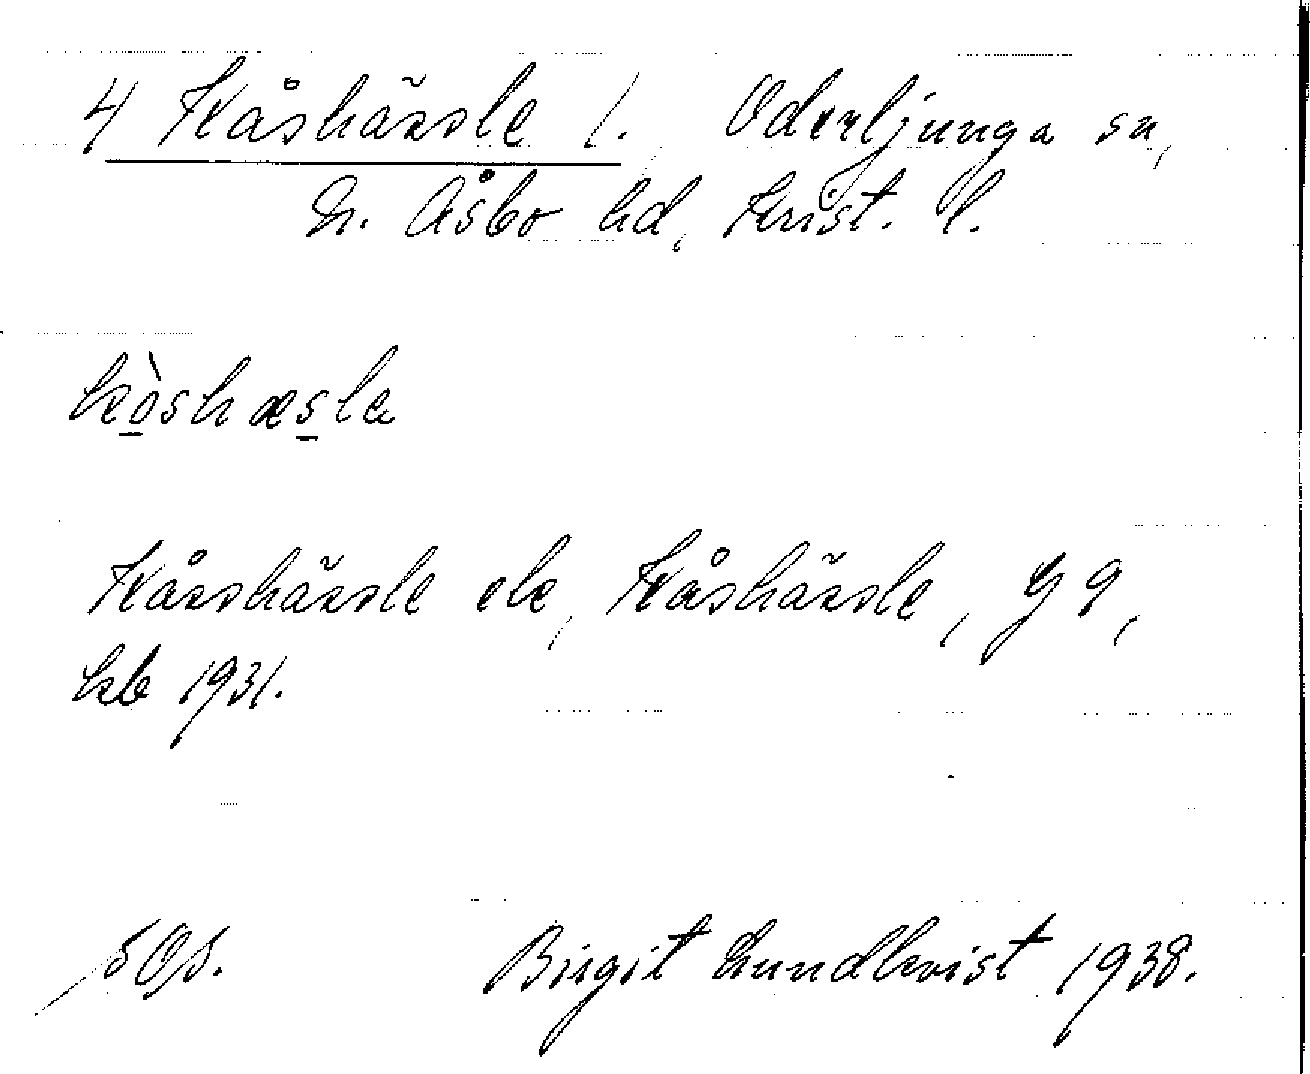 4 Kåshässle 1. Oderljunga sn,
N. Åsbo hd, Krist. l.
kòshæsle
Kårshässle el, Kåshässle, G 9,
kb 1931.
Birgit Lundkvist 1938.